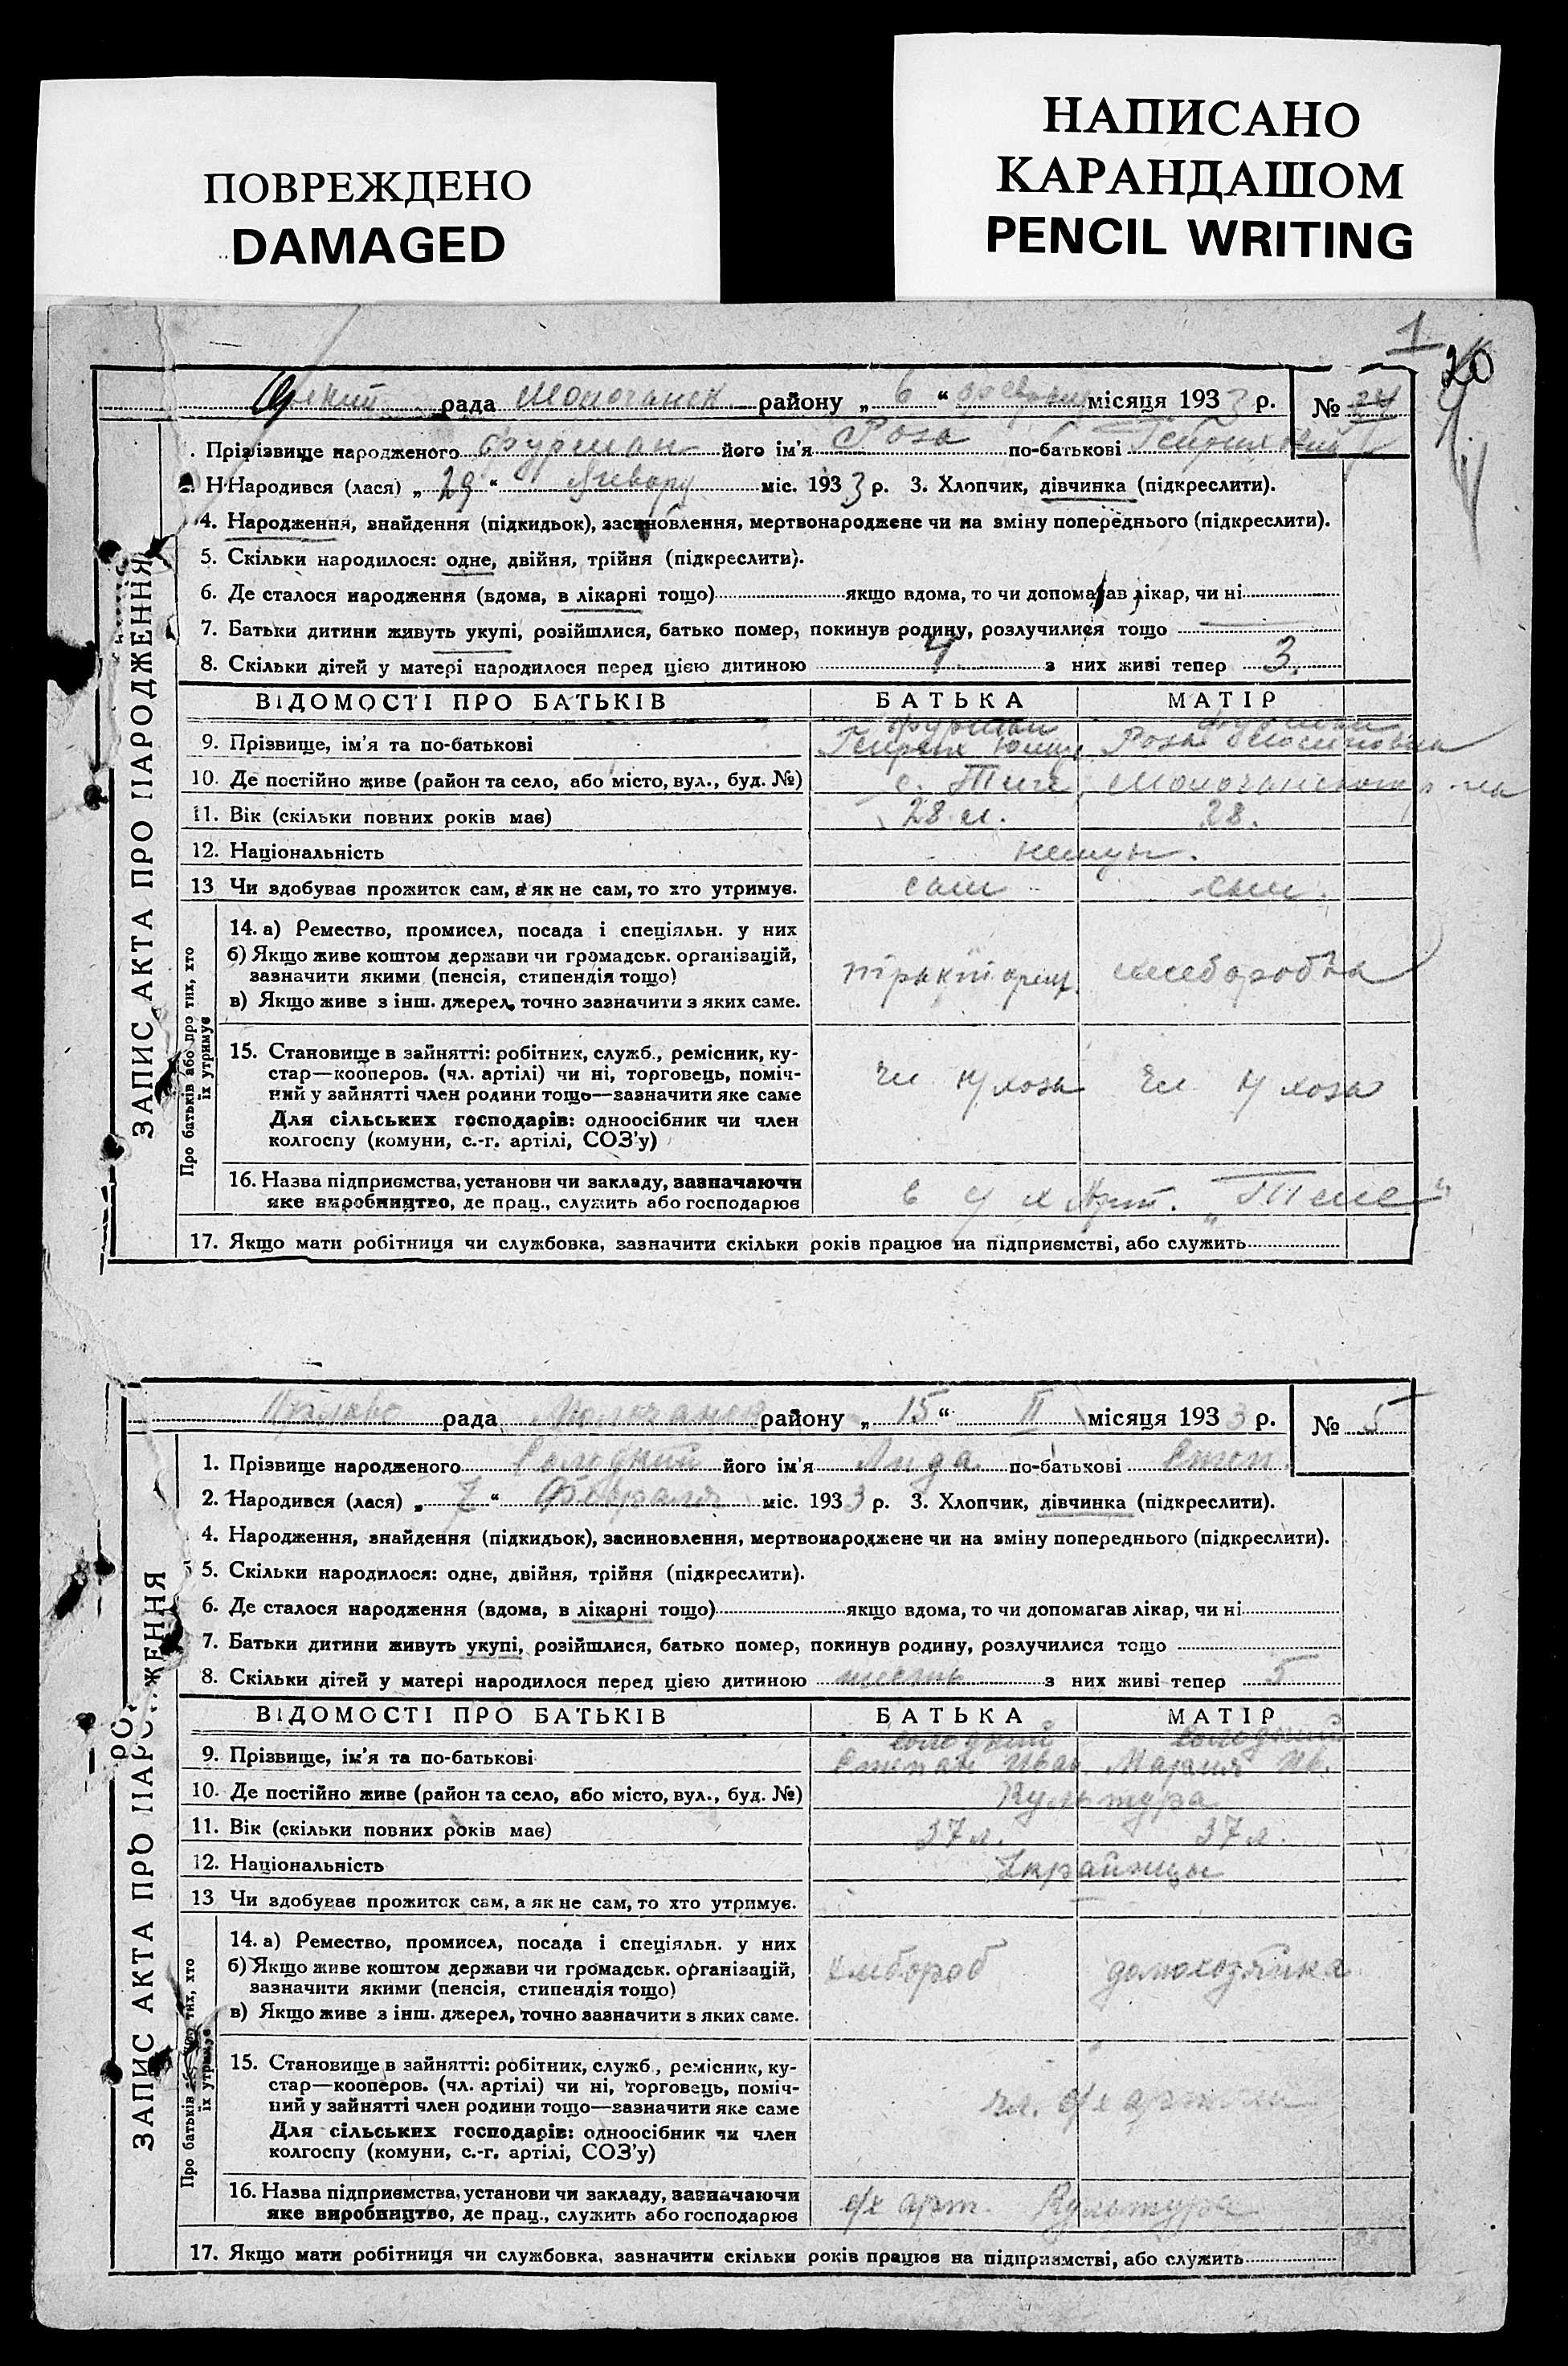 ПОВРЕЖДЕНО
DAMAGED
НАПИСАНО
КАРАНДАШОМ
PENCIL WRITING
1
20
рада Молочанск району „ 6 “ місяця 1933 р. № 24
Прізвище народженого Фурман його ім'я Роза по-батькові
Народився (лася) „ 29 “ Января міс. 1933 р. 3. Хлопчик, дівчинка (підкреслити).
4. Народження, знайдення (підкидьок), засиновлення, мертвонароджене чи на зміну попереднього (підкреслити).
5. Скільки народилося: одне, двійня, трійня (підкреслити).
6. Де сталося народження (вдома, в лікарні тощо) якщо вдома, то чи допомагав лікар, чи ні
7. Батьки дитини живуть укупі, розійшлися, батько помер, покинув родину, розлучилися тощо
8. Скільки дітей у матері народилося перед цією дитиною 4 з них живі тепер 3.
ЗАПИС АКТА ПРО НАРОДЖЕННЯ
ВІДОМОСТІ ПРО БАТЬКІВ БАТЬКА МАТІР
Фурман Фурман
9. Прізвище, ім'я та по-батькові Генрих Роза
10. Де постійно живе (район та село, або місто, вул., буд. №) с. Тиге Молочанского р-на
11. Вік (скільки повних років має) 28 л. 28.
12. Національність немцы.
13 Чи здобував прожиток сам, а як не сам, то хто утримує. сам сам.
Про батьків або про тих, хто їх утримує
14. а) Ремество, промисел, посада і спеціяльн. у них
б) Якщо живе коштом держави чи громадськ. організацій,
зазначити якими (пенсія, стипендія тощо) хлеборобка
в) Якщо живе з інш. джерел, точно зазначити з яких саме.
15. Становище в зайнятті: робітник, служб., ремісник, ку-
стар—кооперов. (чл. артілі) чи ні, торговець, поміч-
ний у зайнятті член родини тощо—зазначити яке саме
Для сільських господарів: одноосібник чи член
колгоспу (комуни, с.-г. артілі, СОЗ'у)
16. Назва підприємства, установи чи закладу, зазначаючи
яке виробництво, де прац., служить або господарює
17. Якщо мати робітниця чи службовка, зазначити скільки років працює на підприємстві, або служить
рада району „ 15 “ II місяця 1933 р. № 5
1. Прізвище народженого Солодкий його ім'я Лида по-батькові Степ.
2. Народився (лася) „ 7 “ Февраля міс. 1933 р. 3. Хлопчик, дівчинка (підкреслити).
4. Народження, знайдення (підкидьок), засиновлення, мертвонароджене чи на зміну попереднього (підкреслити).
5. Скільки народилося: одне, двійня, трійня (підкреслити).
6. Де сталося народження (вдома, в лікарні тощо) якщо вдома, то чи допомагав лікар, чи ні
7. Батьки дитини живуть укупі, розійшлися, батько помер, покинув родину, розлучилися тощо
8. Скільки дітей у матері народилося перед цією дитиною шесть з них живі тепер 5
ЗАПИС АКТА ПРО НАРОДЖЕННЯ
ВІДОМОСТІ ПРО БАТЬКІВ БАТЬКА МАТІР
Солодкий Солодкий
9. Прізвище, ім'я та по-батькові Степан Иван Мария Ив.
10. Де постійно живе (район та село, або місто, вул., буд. №) Культура
11. Вік (скільки повних років має) 37 л. 37 л.
12. Національність Украинцы
13 Чи здобував прожиток сам, а як не сам, то хто утримує.
Про батьків або про тих, хто їх утримує
14. а) Ремество, промисел, посада і спеціяльн. у них
б) Якщо живе коштом держави чи громадськ. організацій, хлебороб домохозяйка
зазначити якими (пенсія, стипендія тощо)
в) Якщо живе з інш. джерел, точно зазначити з яких саме.
15. Становище в зайнятті: робітник, служб., ремісник, ку-
стар—кооперов. (чл. артілі) чи ні, торговець, поміч-
ний у зайнятті член родини тощо—зазначити яке саме чл. с/х артели
Для сільських господарів: одноосібник чи член
колгоспу (комуни, с.-г. артілі, СОЗ'у)
16. Назва підприємства, установи чи закладу, зазначаючи
яке виробництво, де прац., служить або господарює с/х арт. Культура
17. Якщо мати робітниця чи службовка, зазначити скільки років працює на підприємстві, або служить